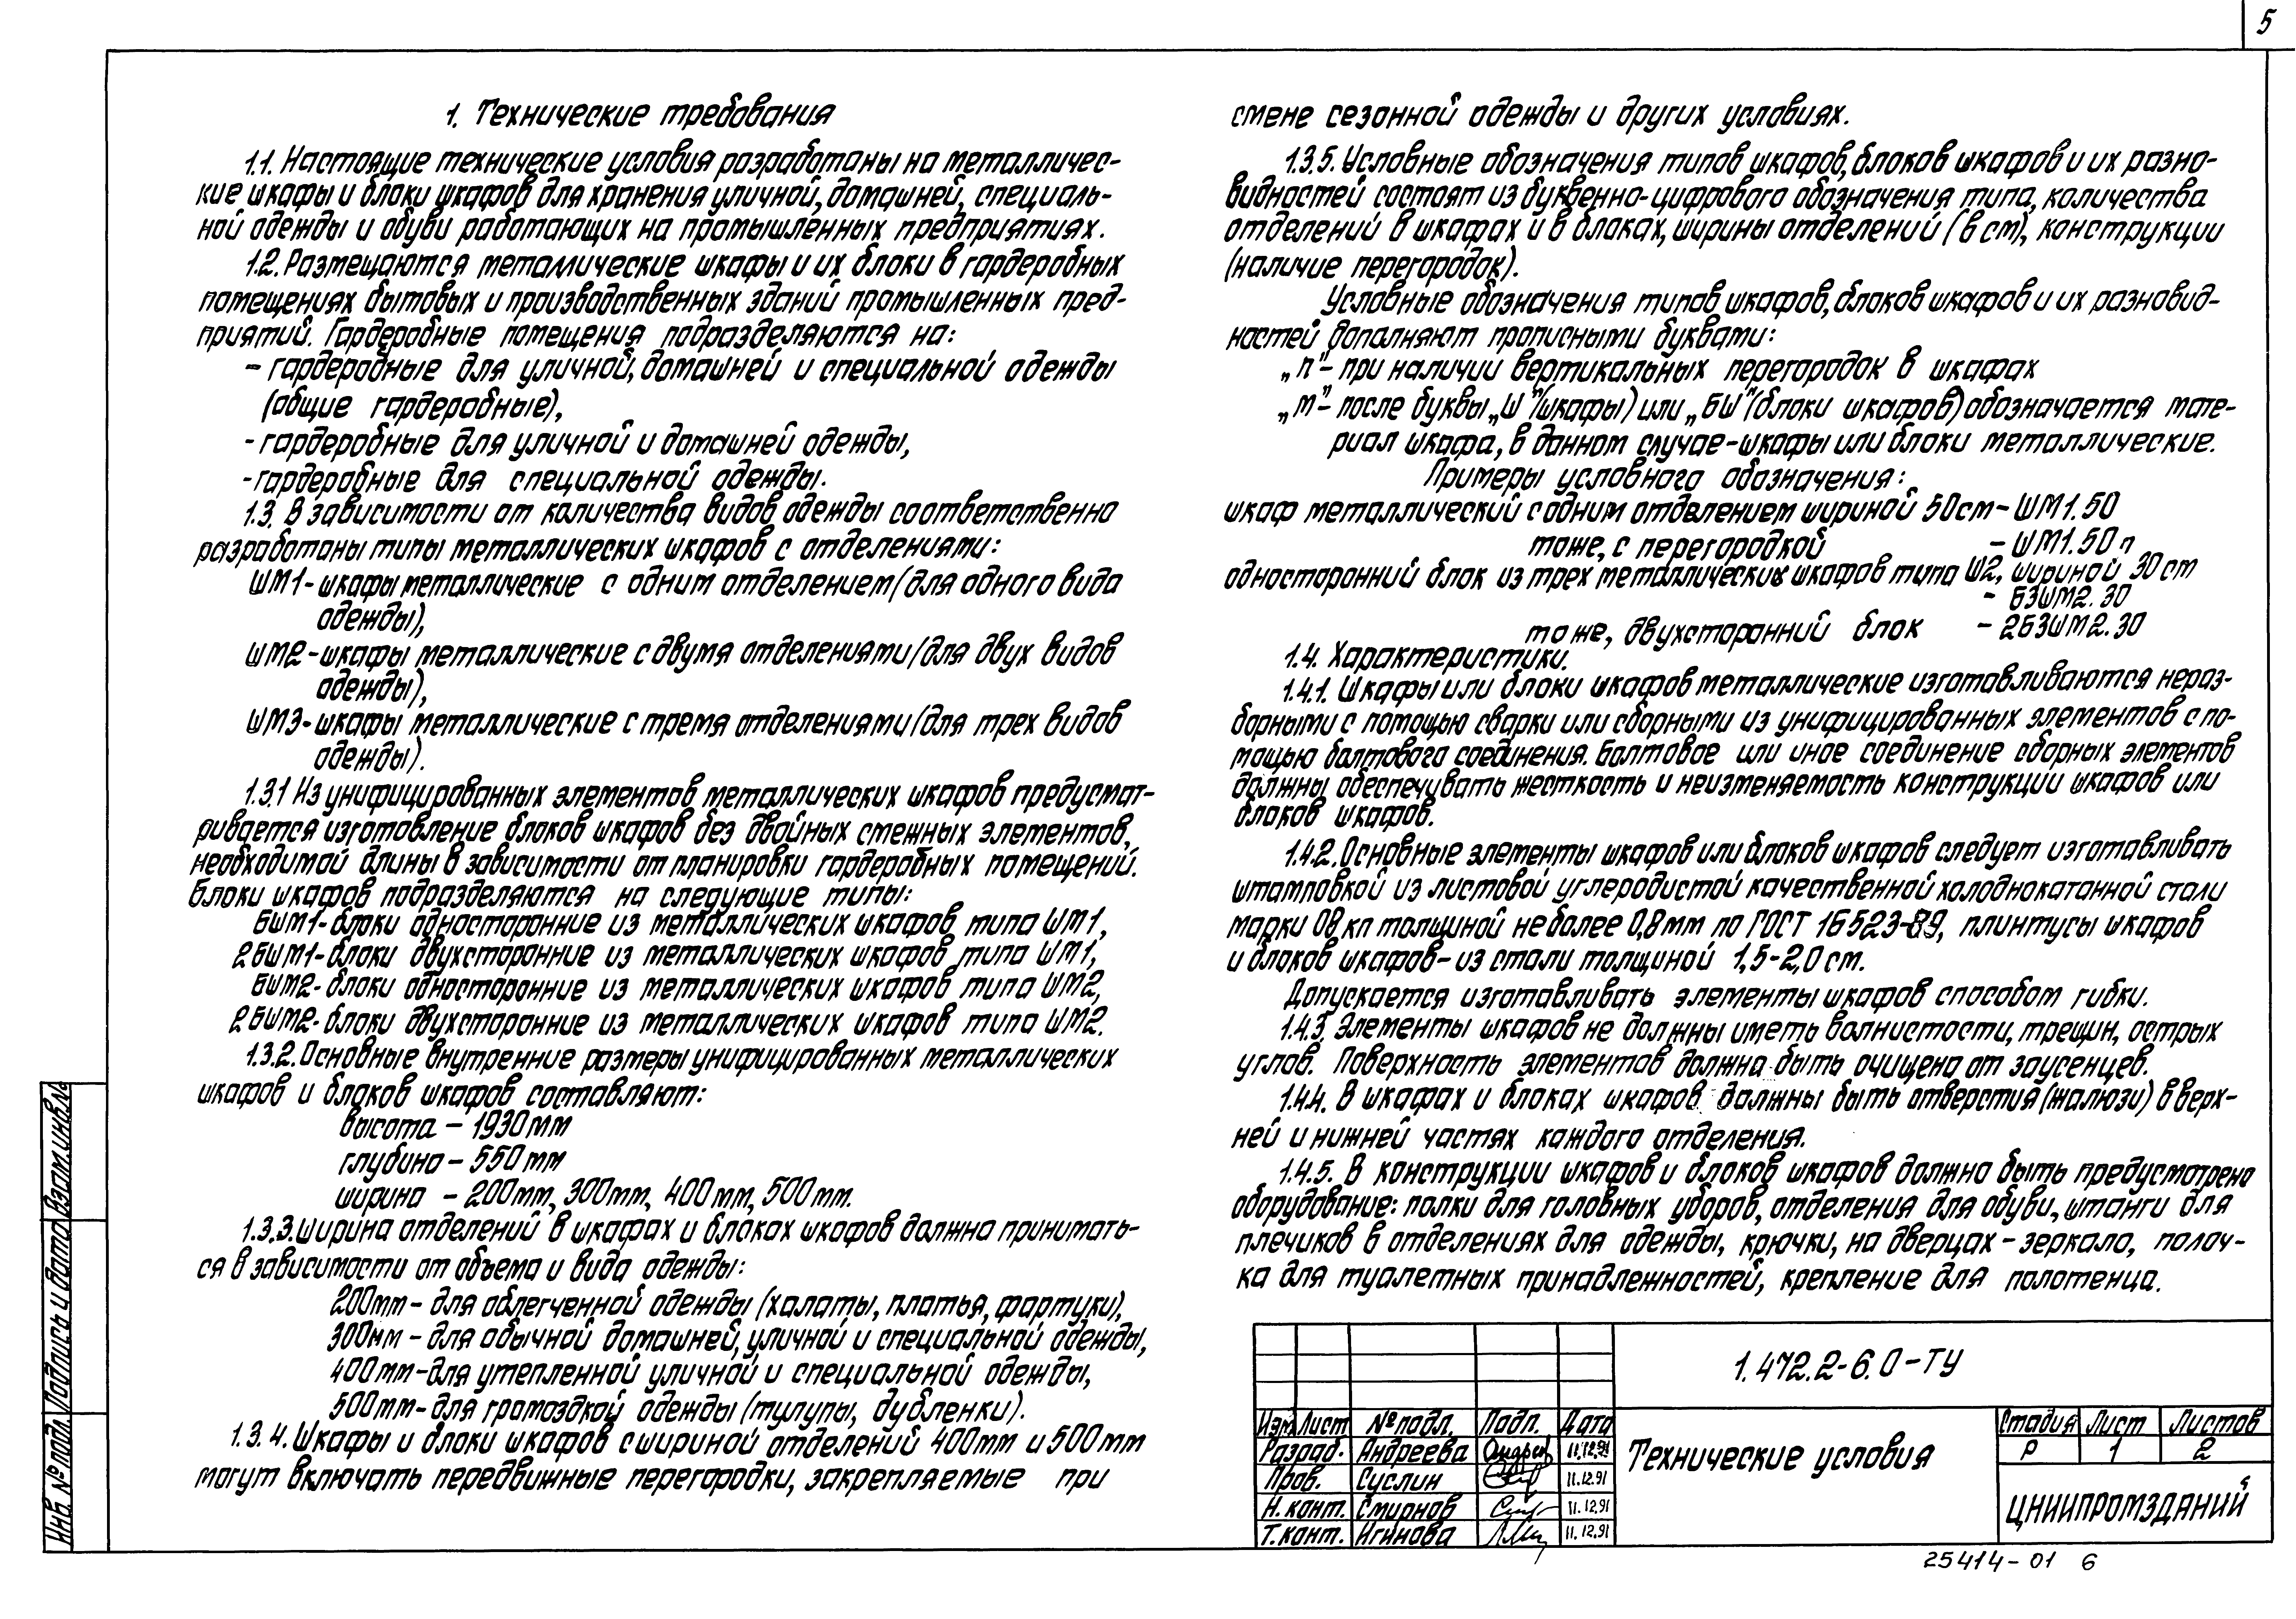 5
1. Технические требования
1.1. Настоящие технические условия разработаны на металличес-
кие шкафы и блоки шкафов для хранения уличной, домашней, специаль-
ной одежды и обуви работающих на промышленных предприятиях.
1.2. Размещаются металлические шкафы и их блоки в гардеробных
помещениях бытовых и производственных зданий промышленных пред-
приятий. Гардеробные помещения подразделяются на:
- гардеробные для уличной, домашней и специальной одежды
(общие гардеробные),
- гардеробные для уличной и домашней одежды,
- гардеробные для специальной одежды.
1.3. В зависимости от количества видов одежды соответственно
разработаны типы металлических шкафов с отделениями:
ШМ1- шкафы металлические с одним отделением (для одного вида
одежды),
ШМ2-шкафы металлические с двумя отделениями (для двух видов
одежды),
ШМ3-шкафы металлические с тремя отделениями (для трех видов
одежды).
1.3.1 Из унифицированных элементов металлических шкафов предусмат-
ривается изготовление блоков шкафов без двойных смежных элементов,
необходимой длины в зависимости от планировки гардеробных помещений.
Блоки шкафов подразделяются на следующие типы:
БШМ1-блоки односторонние из металлических шкафов типа ШМ1,
2БШМ1-блоки двухсторонние из металлических шкафов типа ШМ1,
БШМ2-блоки односторонние из металлических шкафов типа ШМ2,
2БШМ2-блоки двухсторонние из металлических шкафов типа ШМ2.
1.3.2. Основные внутренние размеры унифицированных металлических
шкафов и блоков шкафов составляют:
высота - 1930мм
глубина - 550мм
ширина - 200мм, 300мм, 400мм, 500мм.
1.3.3. Ширина отделений в шкафах и блоках шкафов должна принимать-
ся в зависимости от объема и вида одежды:
200мм- для облегченной одежды (халаты, платья, фартуки),
300мм - для обычной домашней, уличной и специальной одежды,
400мм-для утепленной уличной и специальной одежды,
500мм-для громоздкой одежды (тулупы, дубленки).
1.3.4. Шкафы и блоки шкафов с шириной отделений 400мм и 500мм
могут включать передвижные перегородки, закрепляемые при
смене сезонной одежды и других условиях.
1.3.5. Условные обозначения типов шкафов, блоков шкафов и их разно-
видностей состоят из буквенно-цифрового обозначения типа, количества
отделений в шкафах и в блоках, ширины отделений (в см), конструкции
(наличие перегородок).
Условные обозначения типов шкафов, блоков шкафов и их разновид-
ностей дополняют прописными буквами:
„п"- при наличии вертикальных перегородок в шкафах
„М"- после буквы „Ш" (шкафы) или „БШ" (блоки шкафов) обозначается мате-
риал шкафа, в данном случае-шкафы или блоки металлические.
Примеры условного обозначения:
шкаф металлический с одним отделением шириной 50см- ШМ1.50
тоже, с перегородкой - ШМ1.50 п
односторонний блок из трех металлических шкафов типа Ш2, шириной 30 см
- Б3ШМ2.30
тоже, двухсторонний блок - 2Б3ШМ2.30
1.4. Характеристики.
1.4.1. Шкафы или блоки шкафов металлические изготавливаются нераз-
борными с помощью сварки или сборными из унифицированных элементов с по-
мощью болтового соединения. Болтовое или иное соединение сборных элементов
должны обеспечивать жесткость и неизменяемость конструкций шкафов или
блоков шкафов.
1.4.2. Основные элементы шкафов или блоков шкафов следует изготавливать
штамповкой из листовой углеродистой качественной холоднокатанной стали
марки 08 кп толщиной не более 0,8мм по ГОСТ 16523-89, плинтусы шкафов
и блоков шкафов- из стали толщиной 1,5-2,0 см.
Допускается изготавливать элементы шкафов способом гибки.
1.4.3. Элементы шкафов не должны иметь волнистости, трещин, острых
углов. Поверхность элементов должна быть очищена от заусенцев.
1.4.4. В шкафах и блоках шкафов должны быть отверстия (жалюзи) в верх-
ней и нижней частях каждого отделения.
1.4.5. В конструкции шкафов и блоков шкафов должно быть предусмотрено
оборудование: полки для головных уборов, отделения для обуви, штанги для
плечиков в отделениях для одежды, крючки, на дверцах - зеркало, полоч-
ка для туалетных принадлежностей, крепление для полотенца.
1.472.2-6.0-ТУ
Изм Лист № подл. Подп. Дата
Разраб. Андреева 11.12.91
Пров. Суслин 11.12.91
Н.конт. Смирнов 11.12.91
Т.конт. Игинова 11.12.91
Технические условия
Стадия Лист Листов
Р 1 2
ЦНИИПРОМЗДАНИЙ
25414-01 6
Инв. № подл. Подпись и дата Взам. инв. №